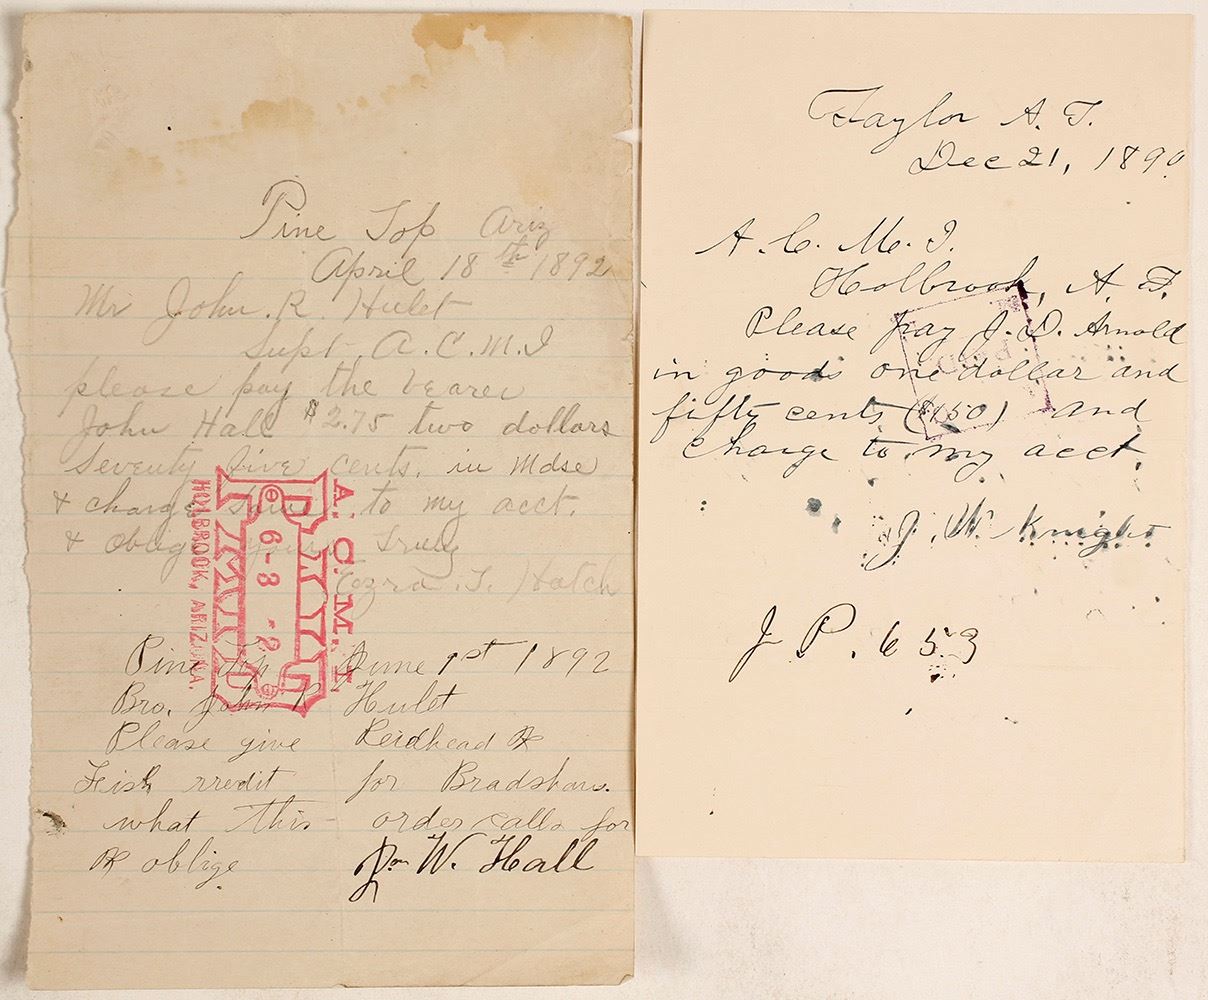 Pine Top Ariz
April 18th 1892
Mr John. R Hulet
Supt. A.C.M.I
please pay the bearer
John Hall $2.75 two dollars
Seventy five cents. in Mdse
& charge same to my acct.
& oblige yours Truly
Ezra. T. Hatch
A. C. M. I.
PAID
6-3-2
HOLBROOK, ARIZONA.
Pine Top June 1st 1892
Bro. John R Hulet
Please give Reidhead &
Fish credit for Bradshaw.
what this order calls for
& oblige Jn W. Hall
Taylor A. T.
Dec 21, 1890
A. C. M. I.
Holbrook, A. T.
Please pay J. D. Arnold
in goods one dollar and
fifty cents ($1.50) and
charge to my acct.
J. W. Knight
J P. 653